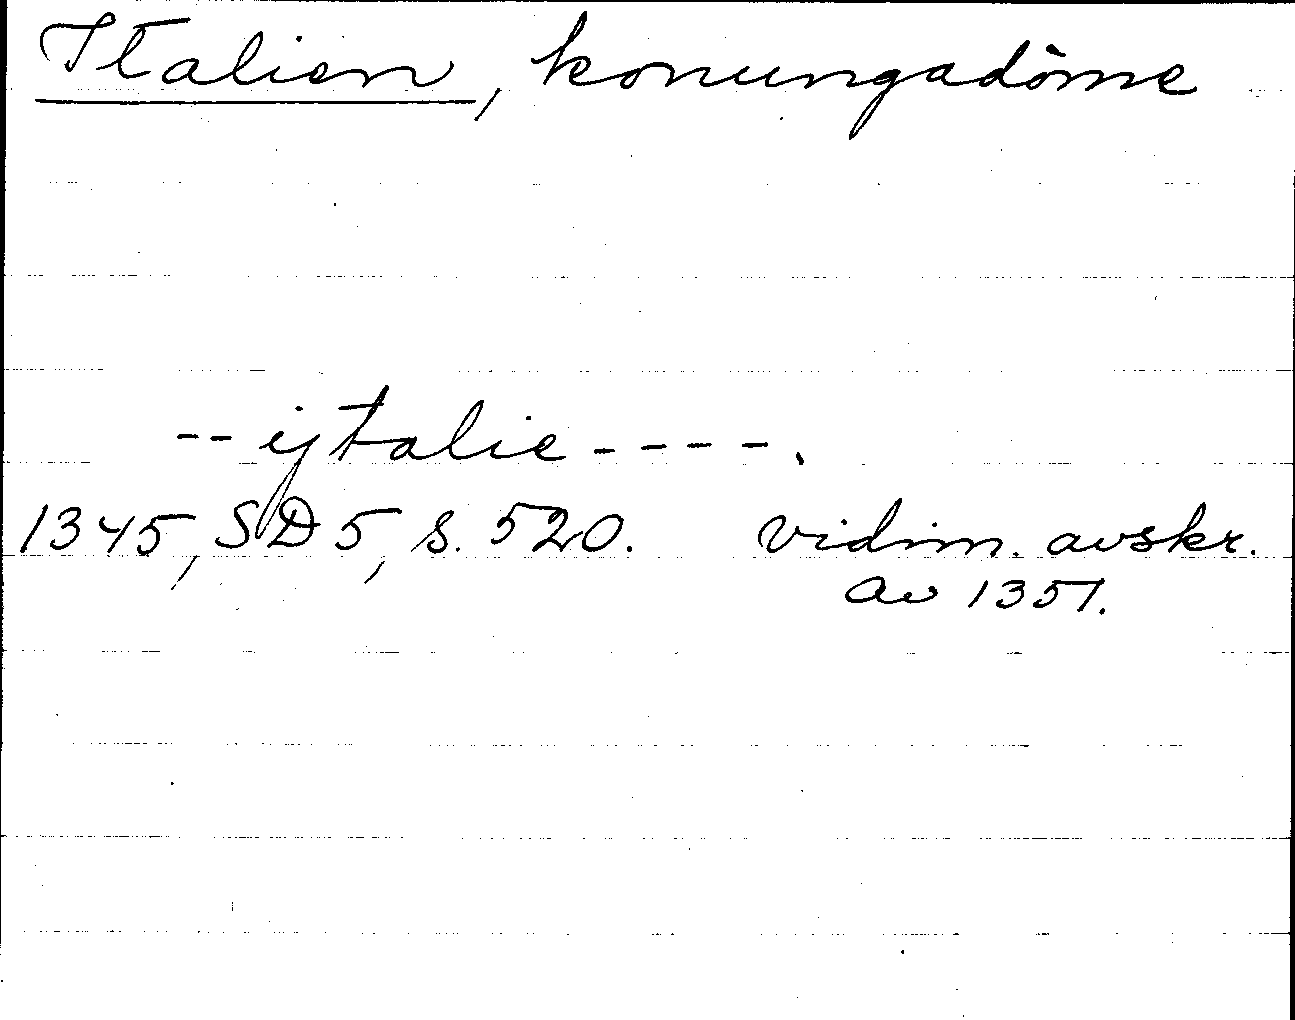 Italien, konungadöme
-- ijtalie ----.
1345, SD 5, s. 520. vidim. avskr.
av 1351.